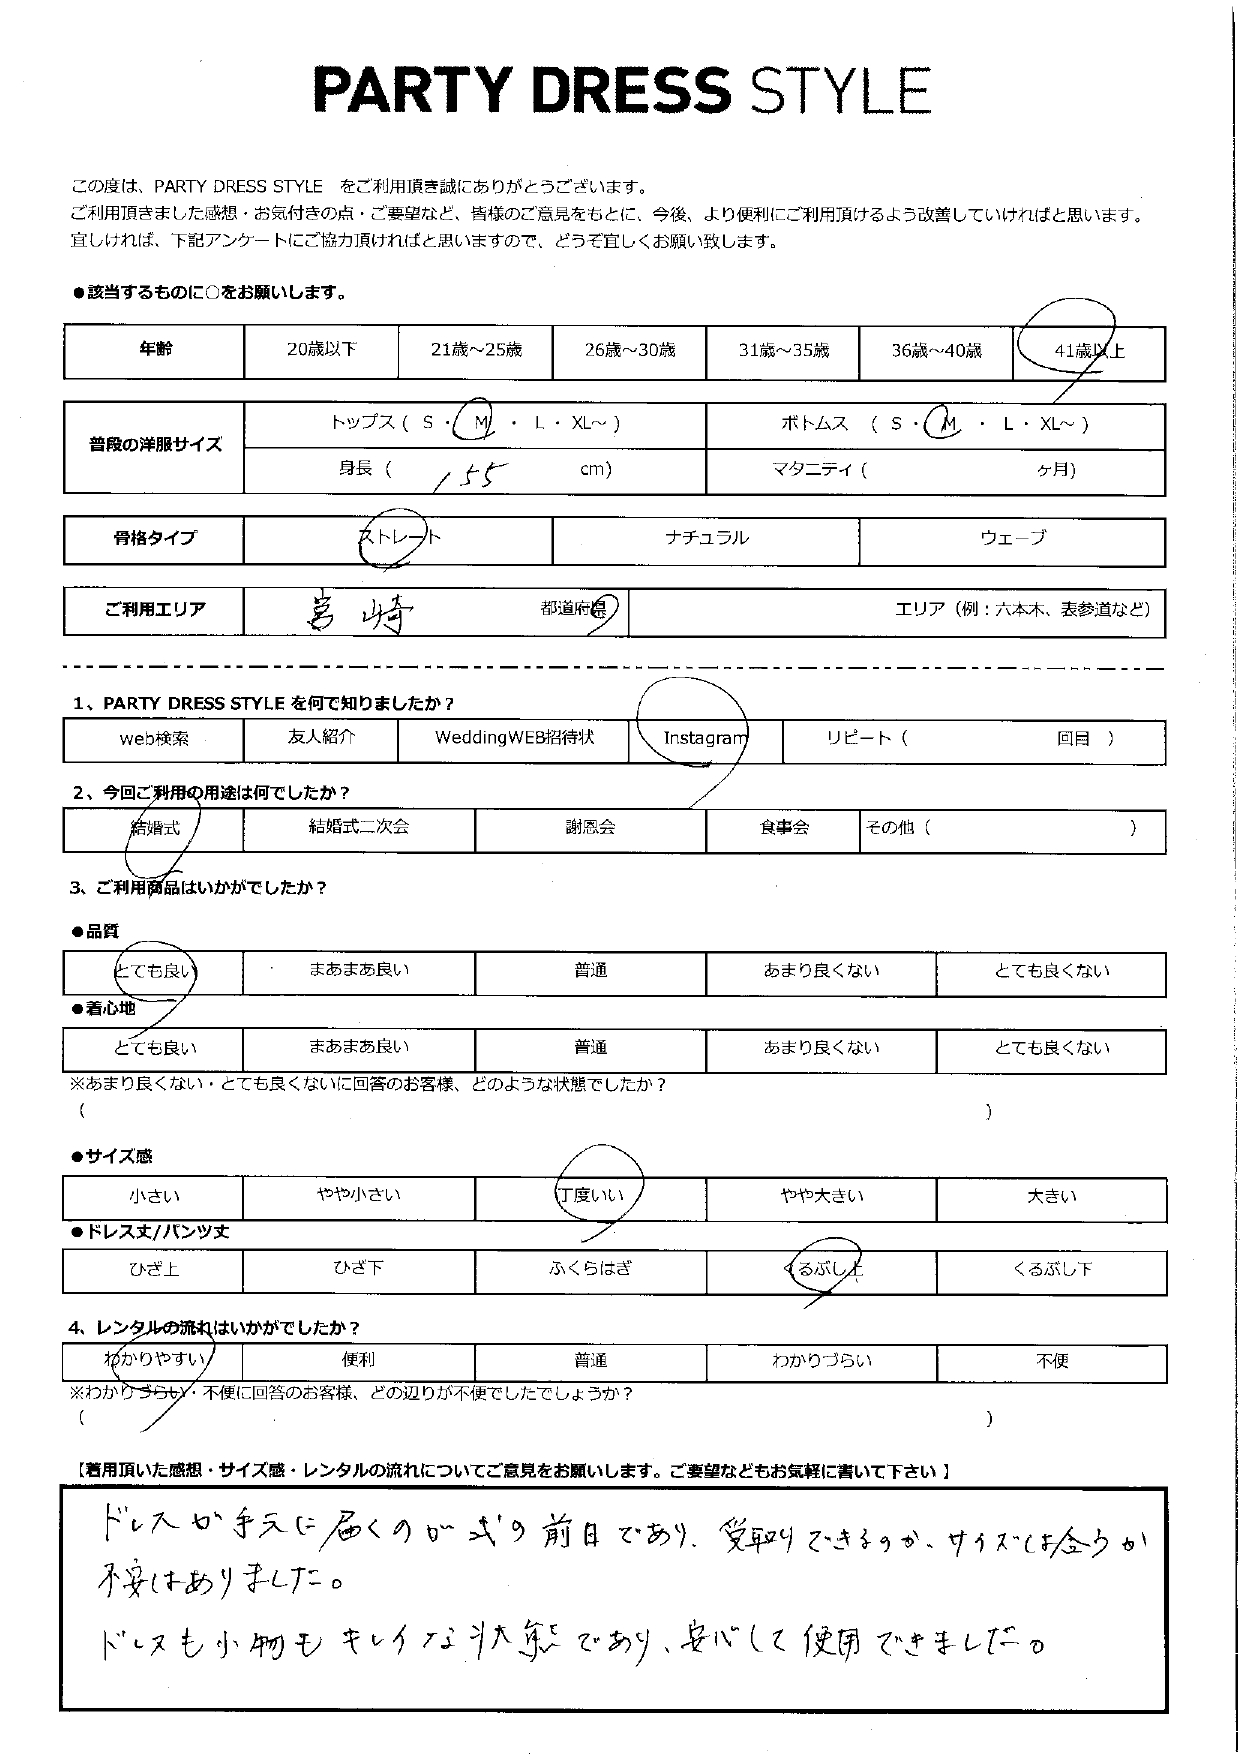 PARTY DRESS STYLE
この度は、PARTY DRESS STYLE をご利用頂き誠にありがとうございます。
ご利用頂きました感想・お気付きの点・ご要望など、皆様のご意見をもとに、今後、より便利にご利用頂けるよう改善していければと思います。
宜しければ、下記アンケートにご協力頂ければと思いますので、どうぞ宜しくお願い致します。
●該当するものに○をお願いします。
年齢 20歳以下 21歳～25歳 26歳～30歳 31歳～35歳 36歳～40歳 41歳以上
普段の洋服サイズ トップス ( S ・ M ・ L ・ XL～ ) ボトムス ( S ・ M ・ L ・ XL～ )
身長 ( 155 cm) マタニティ ( ヶ月)
骨格タイプ ストレート ナチュラル ウェーブ
ご利用エリア 宮崎 都道府県 エリア（例：六本木、表参道など）
1、PARTY DRESS STYLE を何で知りましたか？
web検索 友人紹介 WeddingWEB招待状 Instagram リピート ( 回目 )
2、今回ご利用の用途は何でしたか？
結婚式 結婚式二次会 謝恩会 食事会 その他 ( )
3、ご利用商品はいかがでしたか？
●品質
とても良い まあまあ良い 普通 あまり良くない とても良くない
●着心地
とても良い まあまあ良い 普通 あまり良くない とても良くない
※あまり良くない・とても良くないに回答のお客様、どのような状態でしたか？
( )
●サイズ感
小さい やや小さい 丁度いい やや大きい 大きい
●ドレス丈/パンツ丈
ひざ上 ひざ下 ふくらはぎ くるぶし上 くるぶし下
4、レンタルの流れはいかがでしたか？
わかりやすい 便利 普通 わかりづらい 不便
※わかりづらい・不便に回答のお客様、どの辺りが不便でしたでしょうか？
( )
【着用頂いた感想・サイズ感・レンタルの流れについてご意見をお願いします。ご要望などもお気軽に書いて下さい】
ドレスが手元に届くのが式の前日であり、受取りできるのか、サイズは合うか
不安はありました。
ドレスも小物もキレイな状態であり、安心して使用できました。